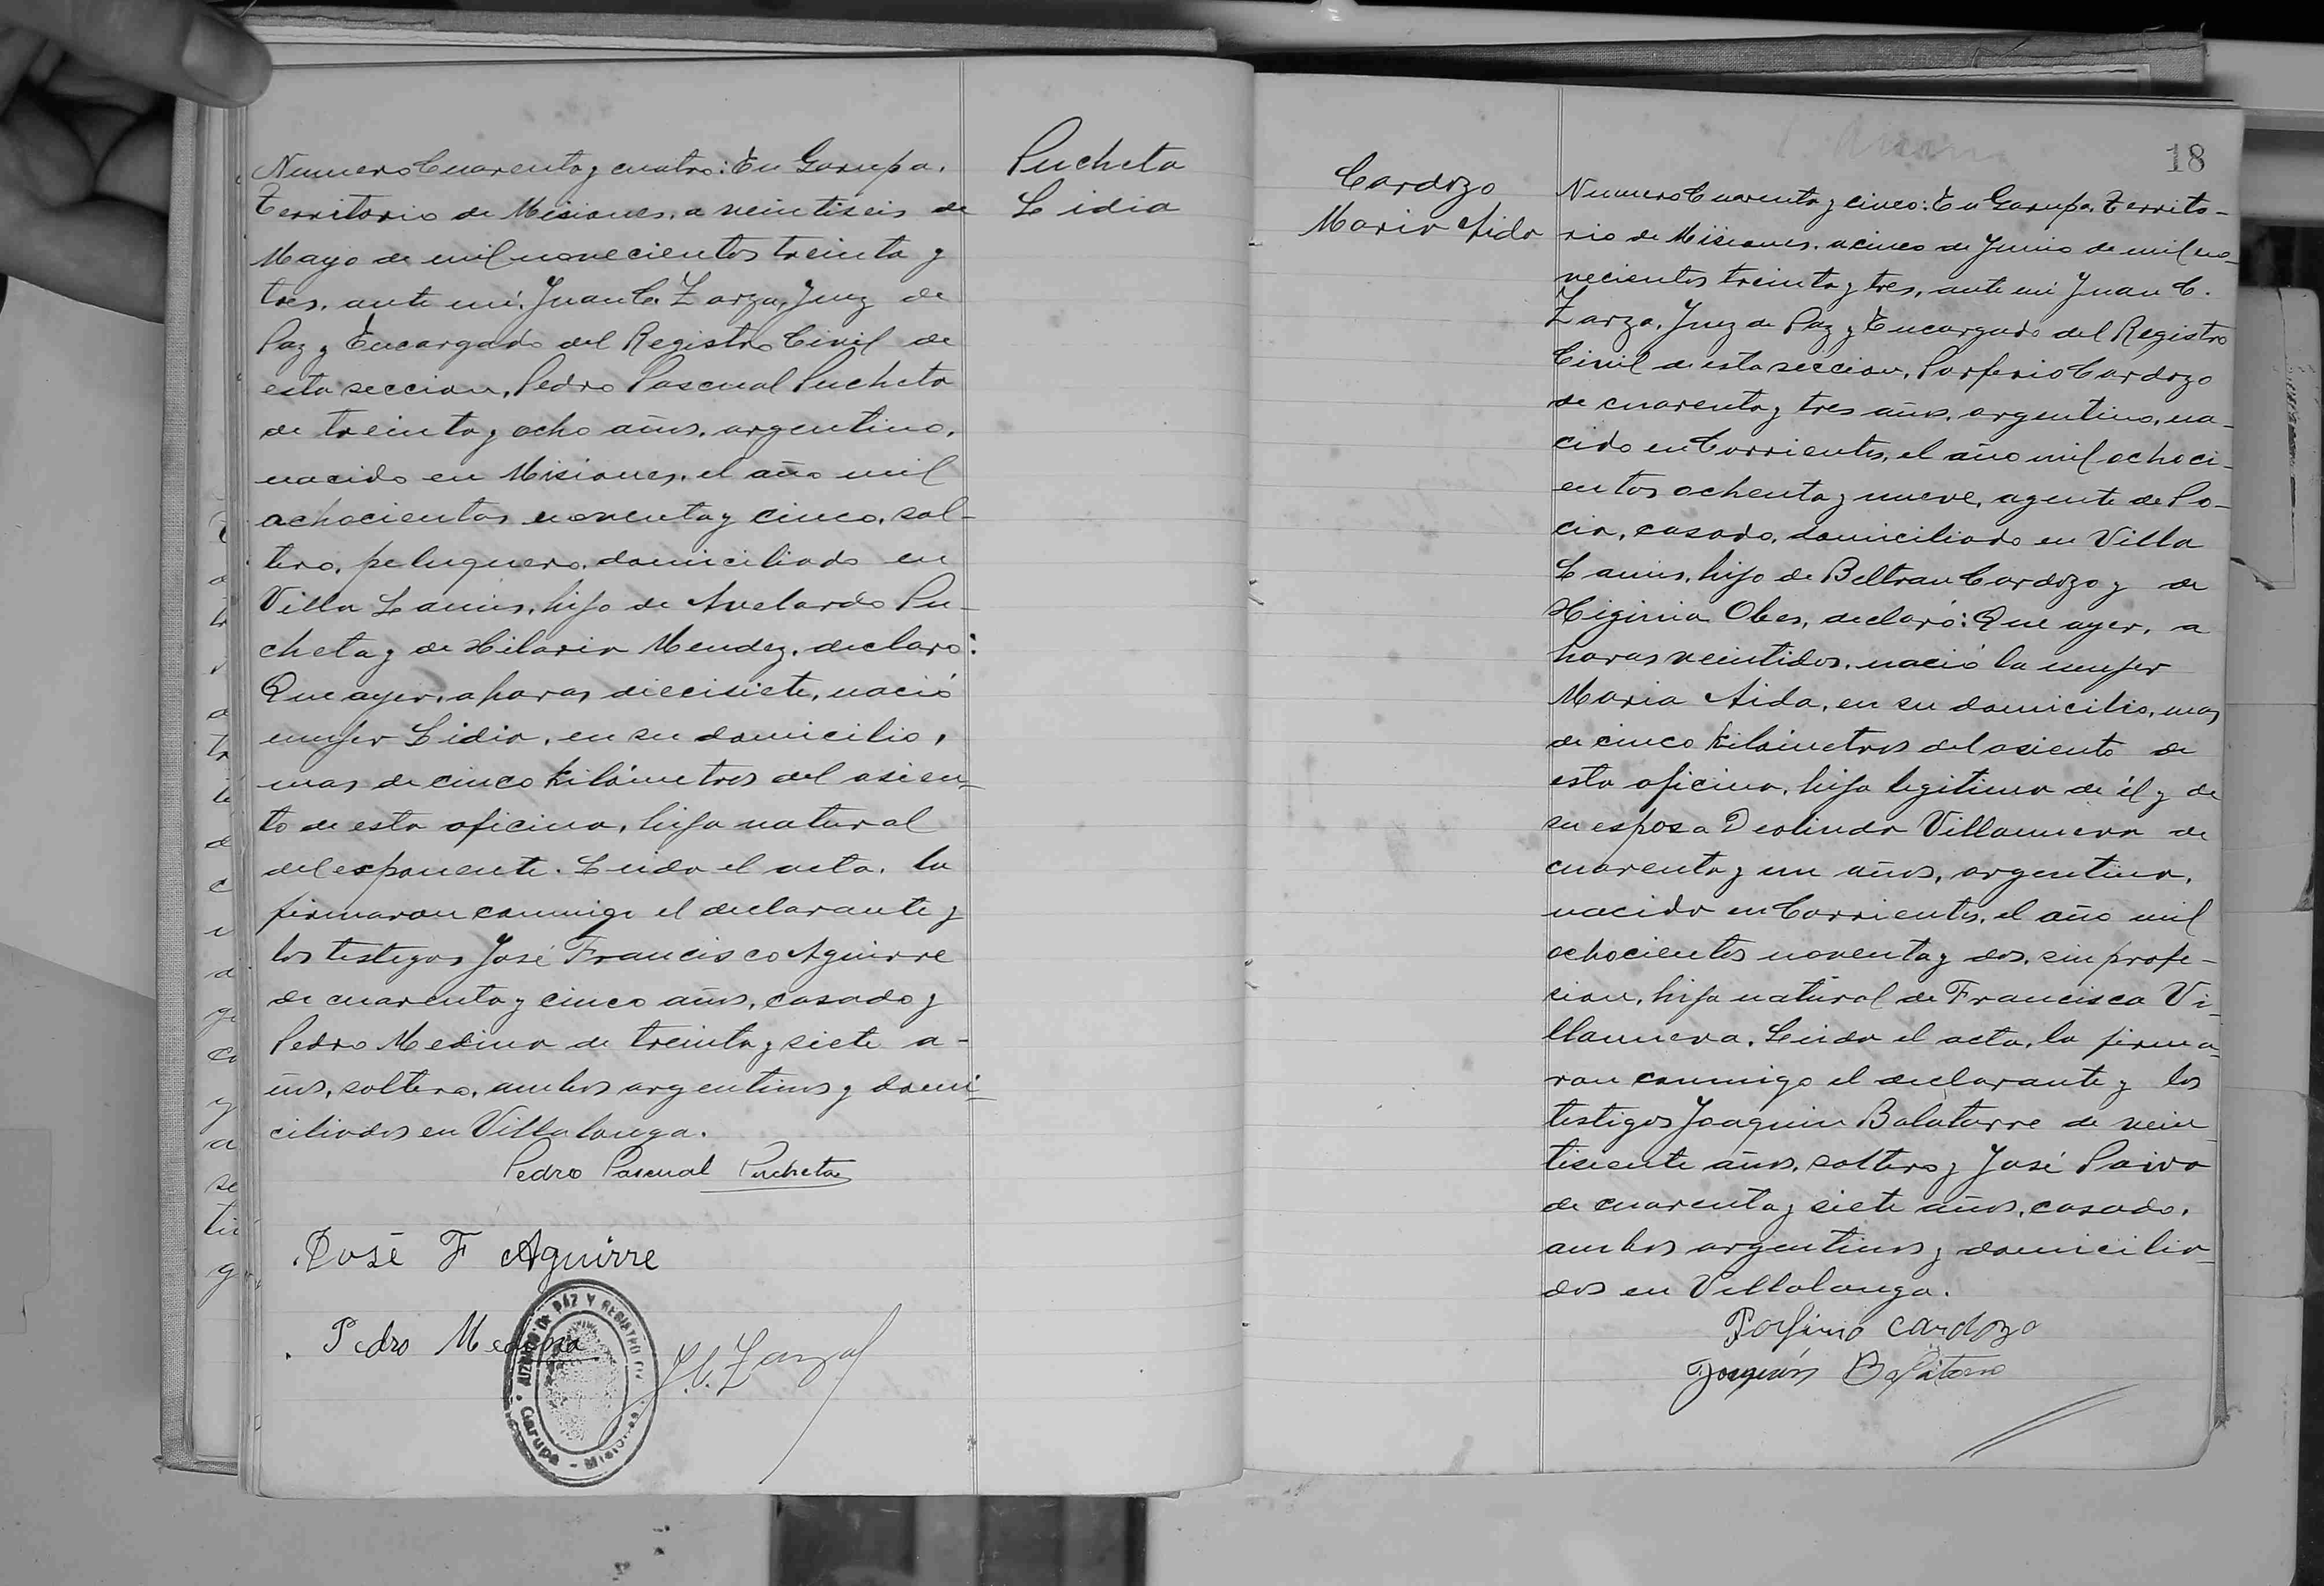 Numero Cuarenta y cuatro: En Garupa,
Territorio de Misiones, a veintiseis de
Mayo de mil novecientos treinta y
tres, ante mí, Juan C. Zarza, Juez de
Paz y Encargado del Registro Civil de
esta seccion, Pedro Pascual Pucheta
de treinta y ocho años, argentino,
nacido en Misiones, el año mil
ochocientos noventa y cinco, sol-
tero, peluquero, domiciliado en
Villa Lanus, hijo de Avelardo Pu-
cheta y de Hilaria Mendez, declaro:
Que ayer, a horas diecisiete, nació
mujer Lidia, en su domicilio,
mas de cinco kilómetros del asien-
to de esta oficina, hija natural
del exponente. Leida el acta, la
firmaron conmigo el declarante y
los testigos José Francisco Aguirre
de cuarenta y cinco años, casado y
Pedro Medina de treinta y siete a-
ños, soltero, ambos argentinos y domi-
ciliados en Villalonga.
Pedro Pascual Pucheta
José F Aguirre
Pedro Medina
J. C. Zarza
JUZGADO DE PAZ Y REGISTRO
Garupa - Misiones
Pucheta
Lidia
18
Cardozo
Maria Aida
Numero Cuarenta y cinco: En Garupa, Territo-
rio de Misiones, a cinco de Junio de mil no-
vecientos treinta y tres, ante mi Juan C.
Zarza, Juez de Paz y Encargado del Registro
Civil de esta seccion, Porferio Cardozo
de cuarenta y tres años, argentino, na-
cido en Corrientes, el año mil ochoci-
entos ochenta y nueve, agente de Po-
cia, casado, domiciliado en Villa
Lanus, hijo de Beltran Cardozo y de
Higinia Obes, declaró: Que ayer, a
horas veintidos, nació la mujer
Maria Aida, en su domicilio, mas
de cinco kilómetros del asiento de
esta oficina, hija legitima de él y de
su esposa Deolinda Villanueva de
cuarenta y un años, argentina,
nacida en Corrientes, el año mil
ochocientos noventa y dos, sin profe-
sion, hija natural de Francisca Vi-
llanueva. Leida el acta, la firma-
ron conmigo el declarante y los
testigos Joaquin Balatorre de vein-
tisiente años, soltero y José Paiva
de cuarenta y siete años, casado,
ambos argentinos y domicilia-
dos en Villalonga.
Porfirio Cardozo
Joaquín